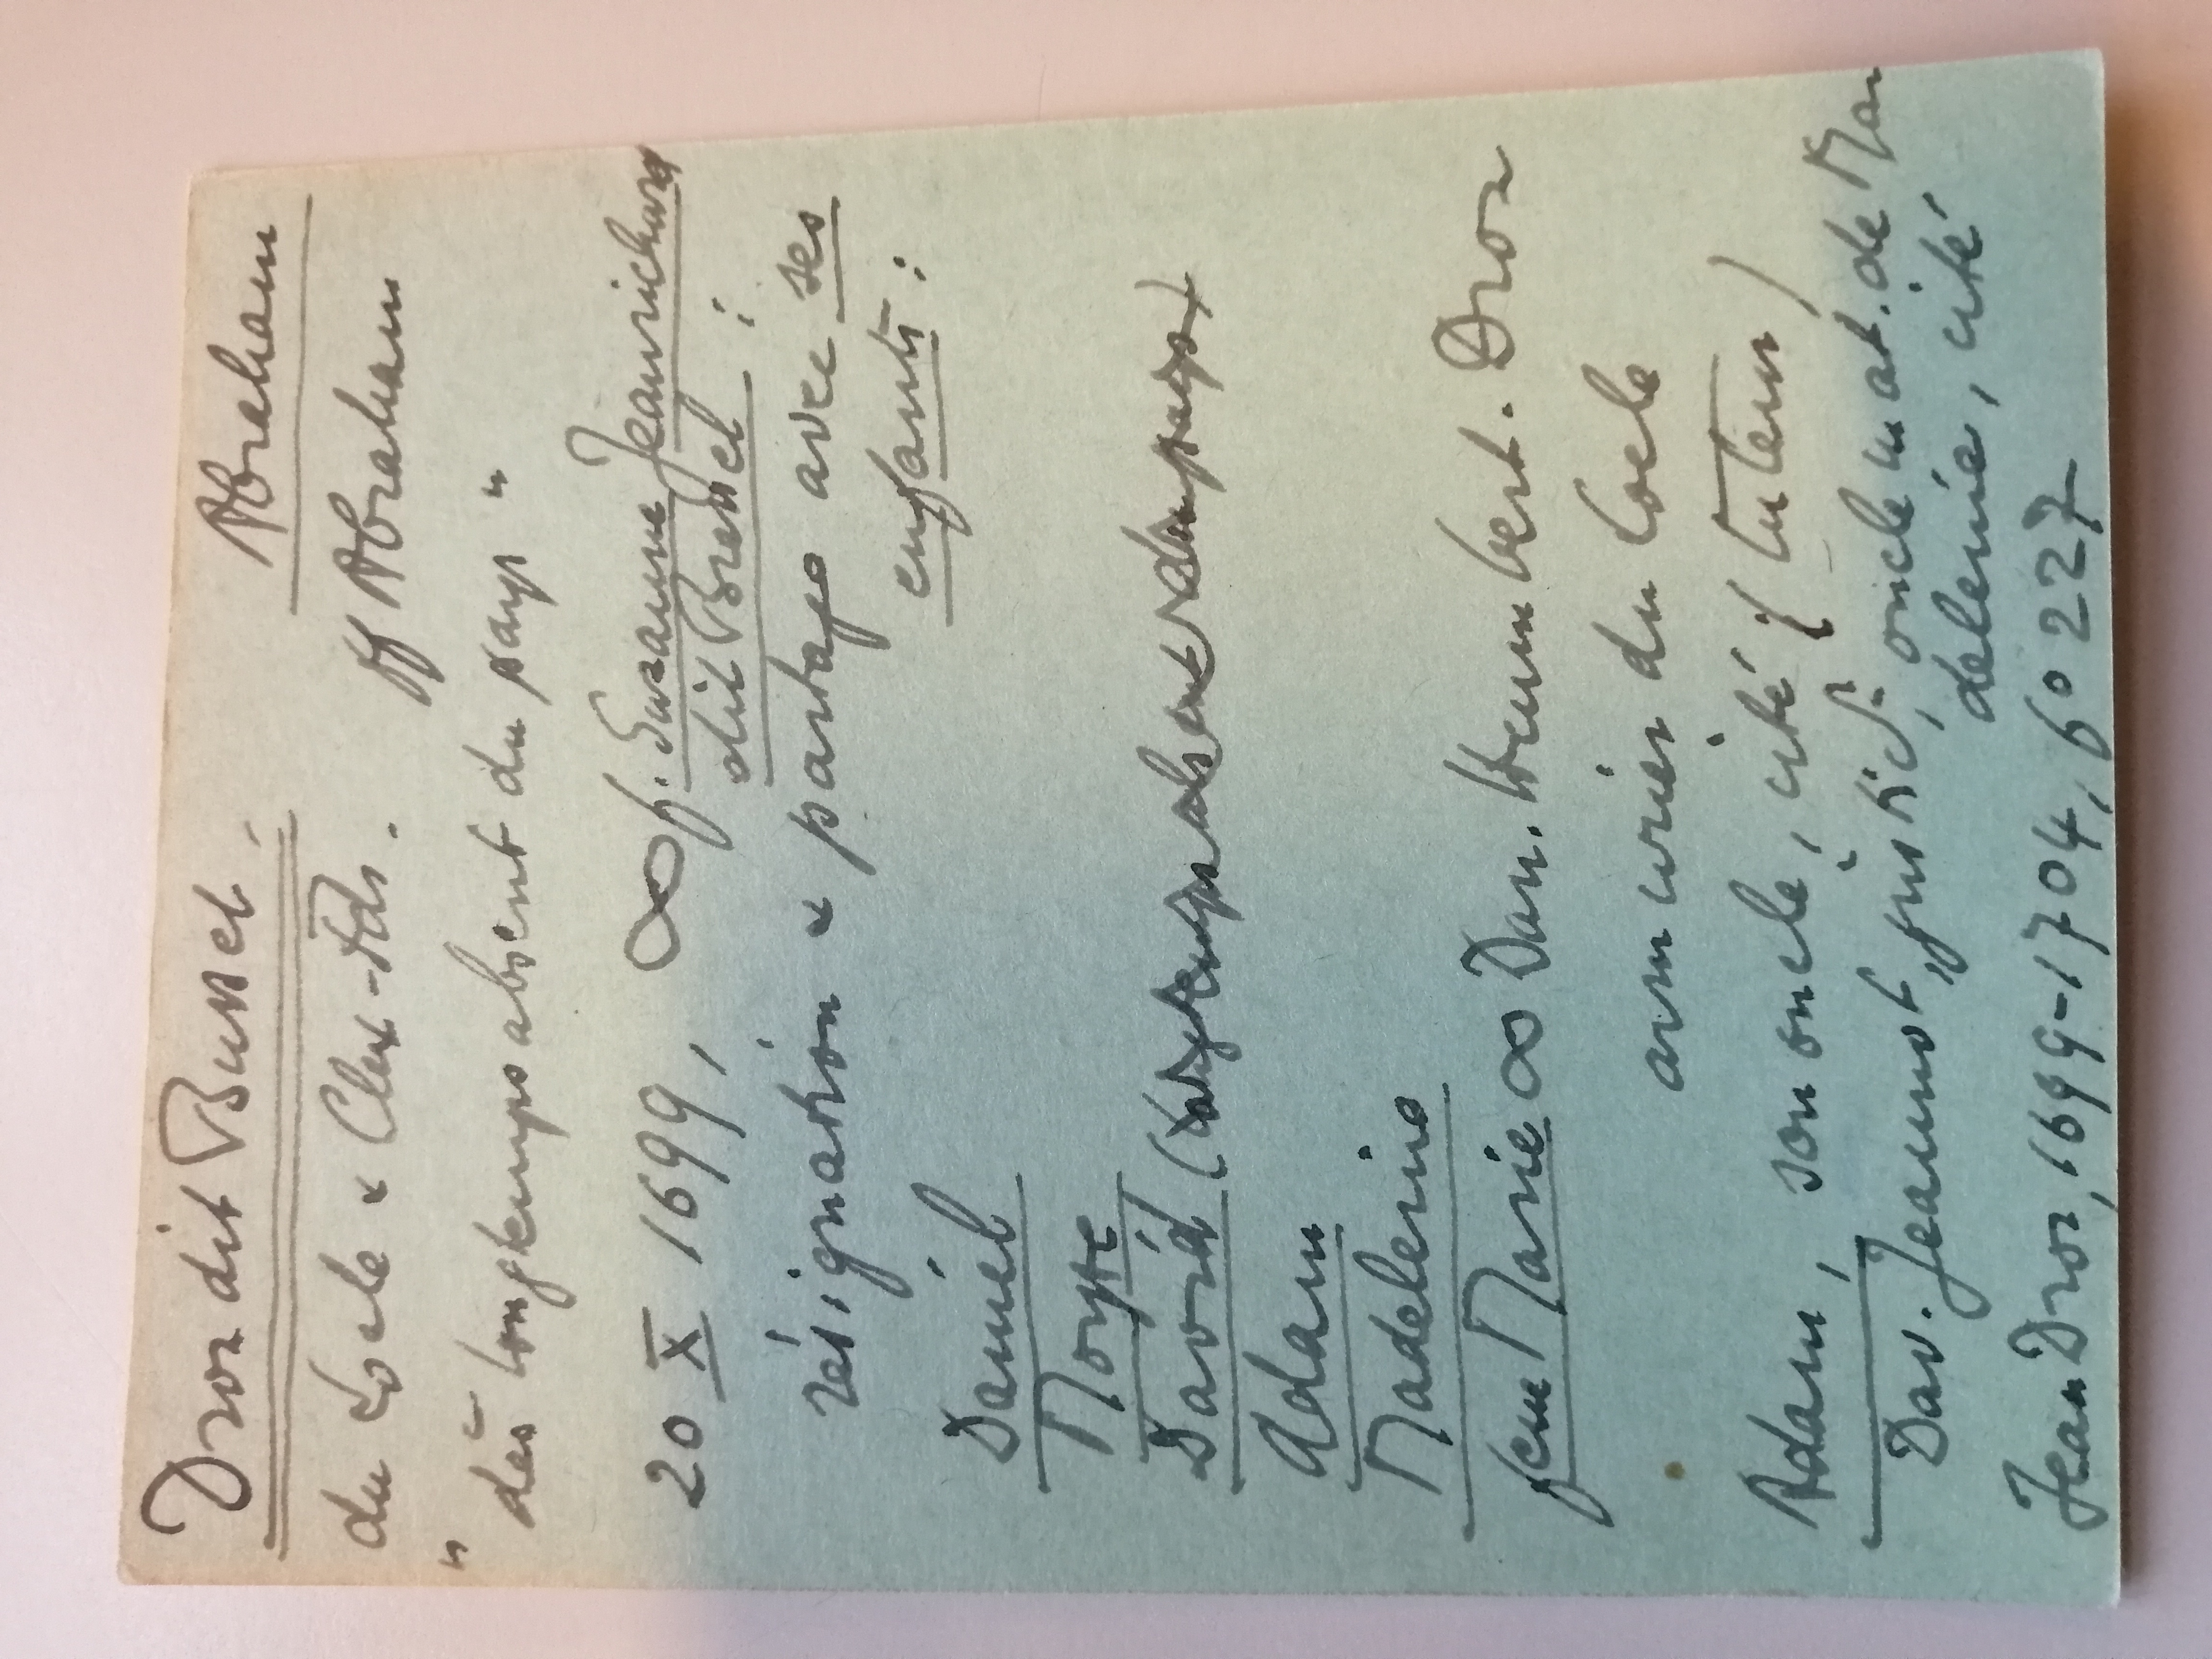 Droz dit Busset, Abraham
du Locle & Chx-Fds. ff Abraham
"dès longtemps absent du pays"
20 X 1699, ∞ p. Suzanne Jeanrichard
dit Bressel :
résignation & partage avec ses
enfants :
Daniel
Moyse
David (longtemps absent du pays)
Adam
Madeleine
feu Marie ∞ Dan. Humbert. Droz
armurier du Locle
Adam, son oncle, cité (tuteur)
Dav. Jeannot, justicier, oncle mat. de Ma
deleine, cité
Jean Droz, 1699-1704, fo 227